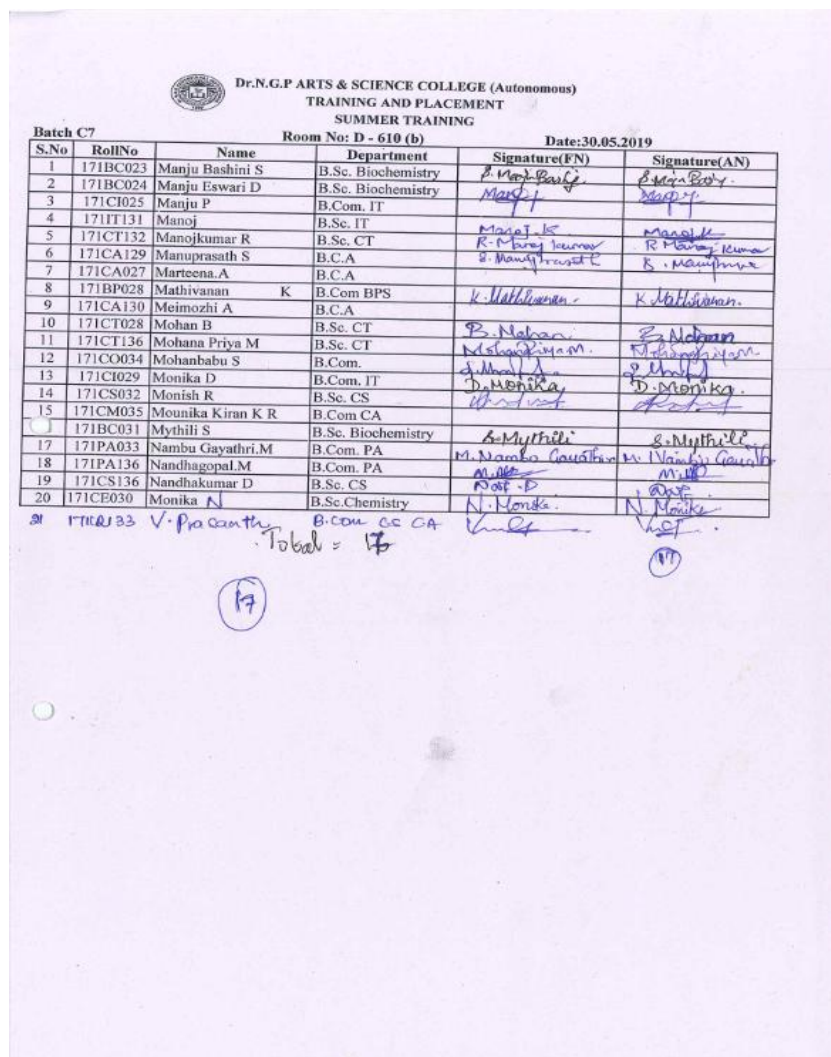 Dr.N.G.P ARTS & SCIENCE COLLEGE (Autonomous)
TRAINING AND PLACEMENT
SUMMER TRAINING
Batch C7 Room No: D - 610 (b) Date:30.05.2019
S.No RollNo Name Department Signature(FN) Signature(AN)
1 171BC023 Manju Bashini S B.Sc. Biochemistry
2 171BC024 Manju Eswari D B.Sc. Biochemistry
3 171CI025 Manju P B.Com. IT
4 171IT131 Manoj B.Sc. IT Manoj.K Manoj.K
5 171CT132 Manojkumar R B.Sc. CT R. Manoj kumar R Manoj kumar
6 171CA129 Manuprasath S B.C.A
7 171CA027 Marteena.A B.C.A
8 171BP028 Mathivanan K B.Com BPS K. Mathivanan. K Mathivanan.
9 171CA130 Meimozhi A B.C.A
10 171CT028 Mohan B B.Sc. CT B. Mohan B. Mohan
11 171CT136 Mohana Priya M B.Sc. CT MohanaPriya M. MohanaPriya M
12 171CO034 Mohanbabu S B.Com.
13 171CI029 Monika D B.Com. IT D. Monika D. Monika.
14 171CS032 Monish R B.Sc. CS
15 171CM035 Mounika Kiran K R B.Com CA
171BC031 Mythili S B.Sc. Biochemistry S. Mythili S. Mythili
17 171PA033 Nambu Gayathri.M B.Com. PA M. Nambu Gayathri M. Nambu Gayathri
18 171PA136 Nandhagopal.M B.Com. PA
19 171CS136 Nandhakumar D B.Sc. CS
20 171CE030 Monika N B.Sc.Chemistry N. Monika. N. Monika
21 V. Prasanth B.com CS CA
Total = 17
17
17